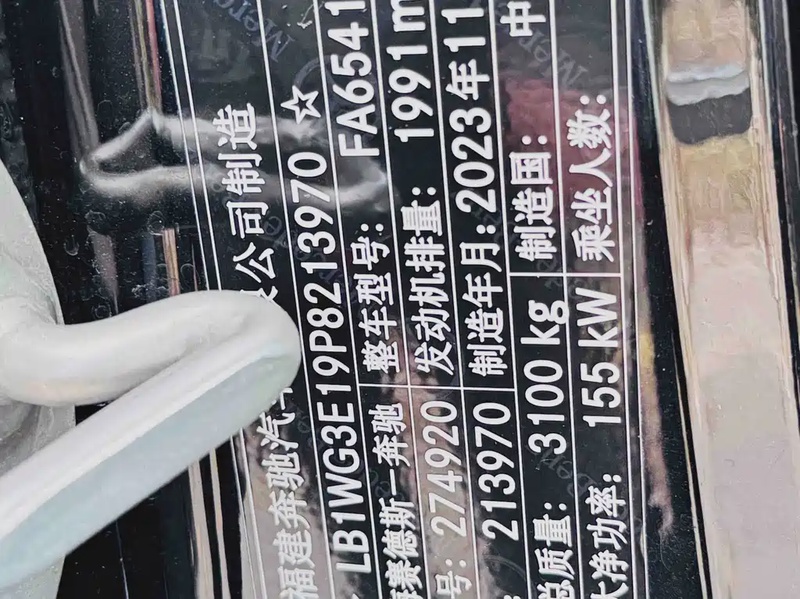 福建奔驰汽 公司制造
LB1WG3E19P8213970 ☆
梅赛德斯-奔驰 整车型号: FA6541
号: 274920 发动机排量: 1991m
213970 制造年月: 2023年11
总质量: 3100 kg 制造国: 中
大净功率: 155 kW 乘坐人数: